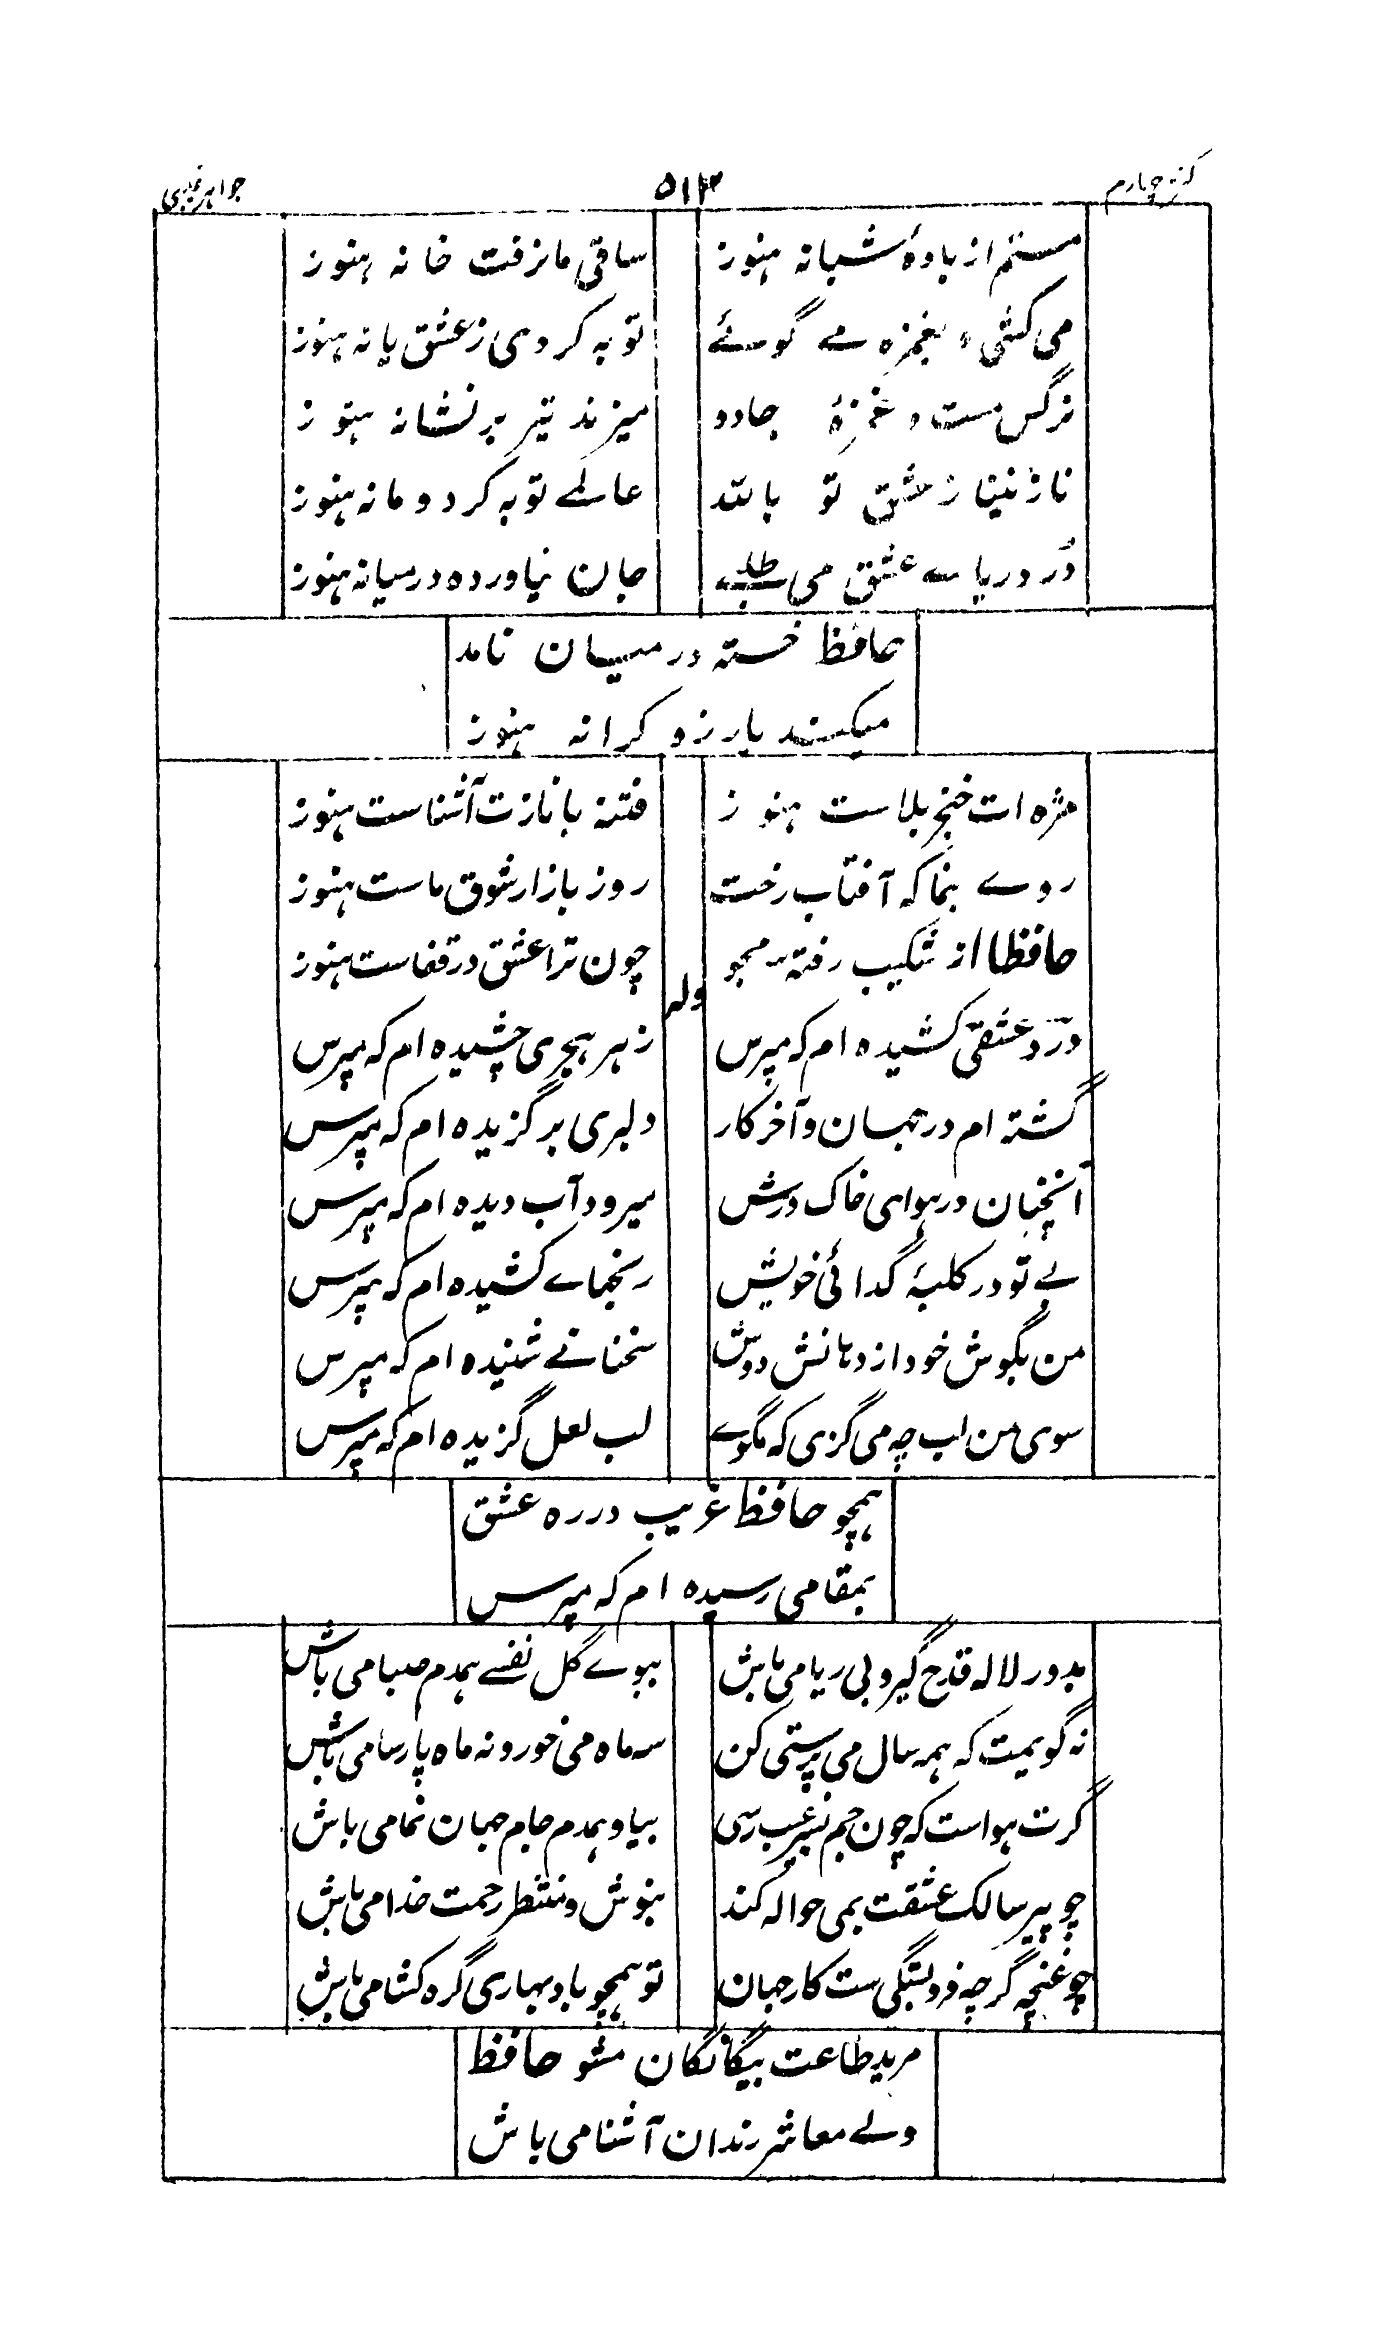 کنز چهارم ۵۱۳ جواهر غیبی
مستم از بادهٔ شبانه هنوز ساقی ما نرفت خانه هنوز
می کشی و بغمزه مے گوئے توبه کردی ز عشق یا نه هنوز
نرگس مست و غمزهٔ جادو میزند تیر بر نشانه هنوز
نازنینا ز عشق تو باللہ عالمے توبه کرد و ما نه هنوز
دُر دریاے عشق می طلبے جان نیاورده در میانه هنوز
حافظ خسته در میان نامد
میکند یار زو کرانه هنوز
مژه ات خنجر بلاست هنوز فتنه با نازت آشناست هنوز
روے بنما که آفتاب رخت روز بازار شوق ماست هنوز
حافظا از شکیب رفته مجو چون ترا عشق در قفاست هنوز
وله
درد عشقی کشیده ام که مپرس زهر هجری چشیده ام که مپرس
گشته ام در جهان و آخر کار دلبری برگزیده ام که مپرس
آنچنان در هوای خاک درش میرود آب دیده ام که مپرس
بے تو در کلبهٔ گدائی خویش رنجهاے کشیده ام که مپرس
من بگوش خود از دهانش دوش سخنانے شنیده ام که مپرس
سوی من لب چه می گزی که مگوے لب لعل گزیده ام که مپرس
همچو حافظ غریب در ره عشق
بمقامی رسیده ام که مپرس
بدور لاله قدح گیر و بی ریا می باش ببوے گل نفسے همدم صبا می باش
نه گویمت که همه سال می پرستی کن سه ماه می خور و نه ماه پارسا می باش
گرت هواست که چون جم بسر غیب رسی بیا و همدم جام جهان نما می باش
چو پیر سالک عشقت بمی حواله کند بنوش و منتظر رحمت خدا می باش
چو غنچه گرچه فرو بستگی ست کار جهان تو همچو باد بهاری گره کشا می باش
مرید طاعت بیگانگان مشو حافظ
ولے معاشر رندان آشنا می باش